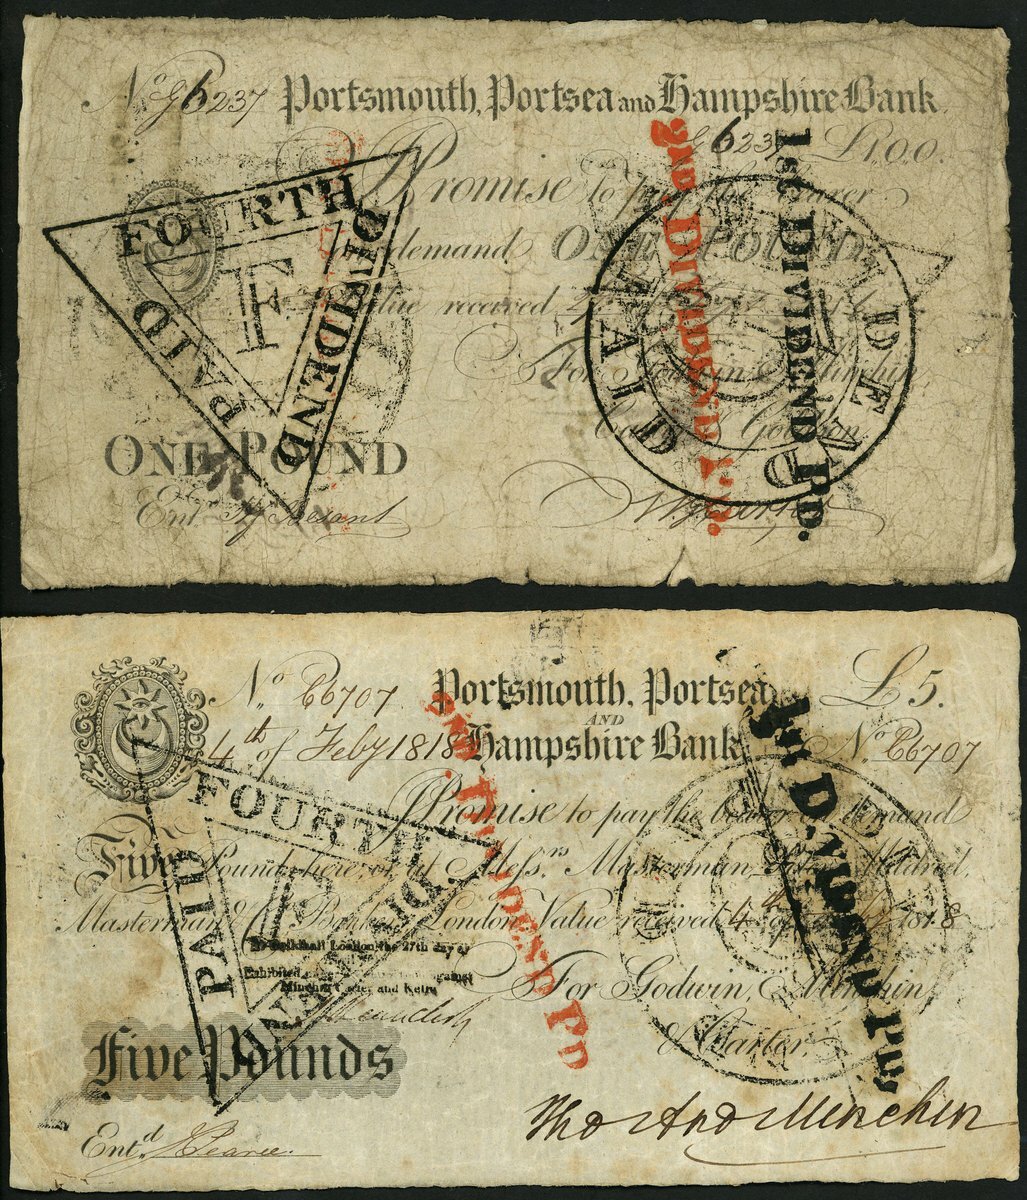 No G6237 Portsmouth, Portsea and Hampshire Bank
6237 £1.0.0.
I Promise to pay the Bearer
demand ONE POUND
Value received
For Godwin, Minchin
ONE POUND
Entd.
FOURTH DIVIDEND PAID
F
DIVIDEND PAID
2nd. DIVIDEND PD.
1st DIVIDEND PD.
No 6707 Portsmouth, Portsea £5.
AND
4th of Feby 1818 Hampshire Bank No 6707
I Promise to pay the bearer on demand
Five Pounds here, or at Messrs. Masterman, Mildred,
Masterman & Co. Bankers London Value received 4th 1818
London the 27th day of
Exhibited against
Minchin Carter and Kelly
For Godwin, Minchin
& Carter.
Five Pounds
Thos And Minchin
Entd. J Pearce
PAID FOURTH
2nd. DIVIDEND PD
1st DIVIDEND PD.